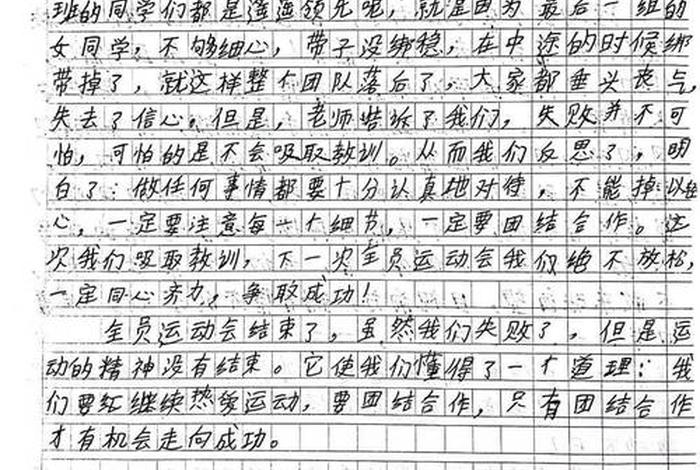 班的同学们都是遥遥领先呢，就是因为最后一组的
女同学，不够细心，带子没绑稳，在中途的时候绑
带掉了，就这样整个团队落后了，大家都垂头丧气，
失去了信心。但是，老师告诉了我们，失败并不可
怕，可怕的是不会吸取教训。从而我们反思了，明
白了：做任何事情都要十分认真地对待，不能掉以轻
心，一定要注意每一个细节，一定要团结合作。这
次我们吸取教训，下一次全员运动会我们绝不放松，
一定同心齐力，争取成功！
全员运动会结束了，虽然我们失败了，但是运
动的精神没有结束。它使我们懂得了一个道理：我
们要继续热爱运动，要团结合作，只有团结合作
才有机会走向成功。